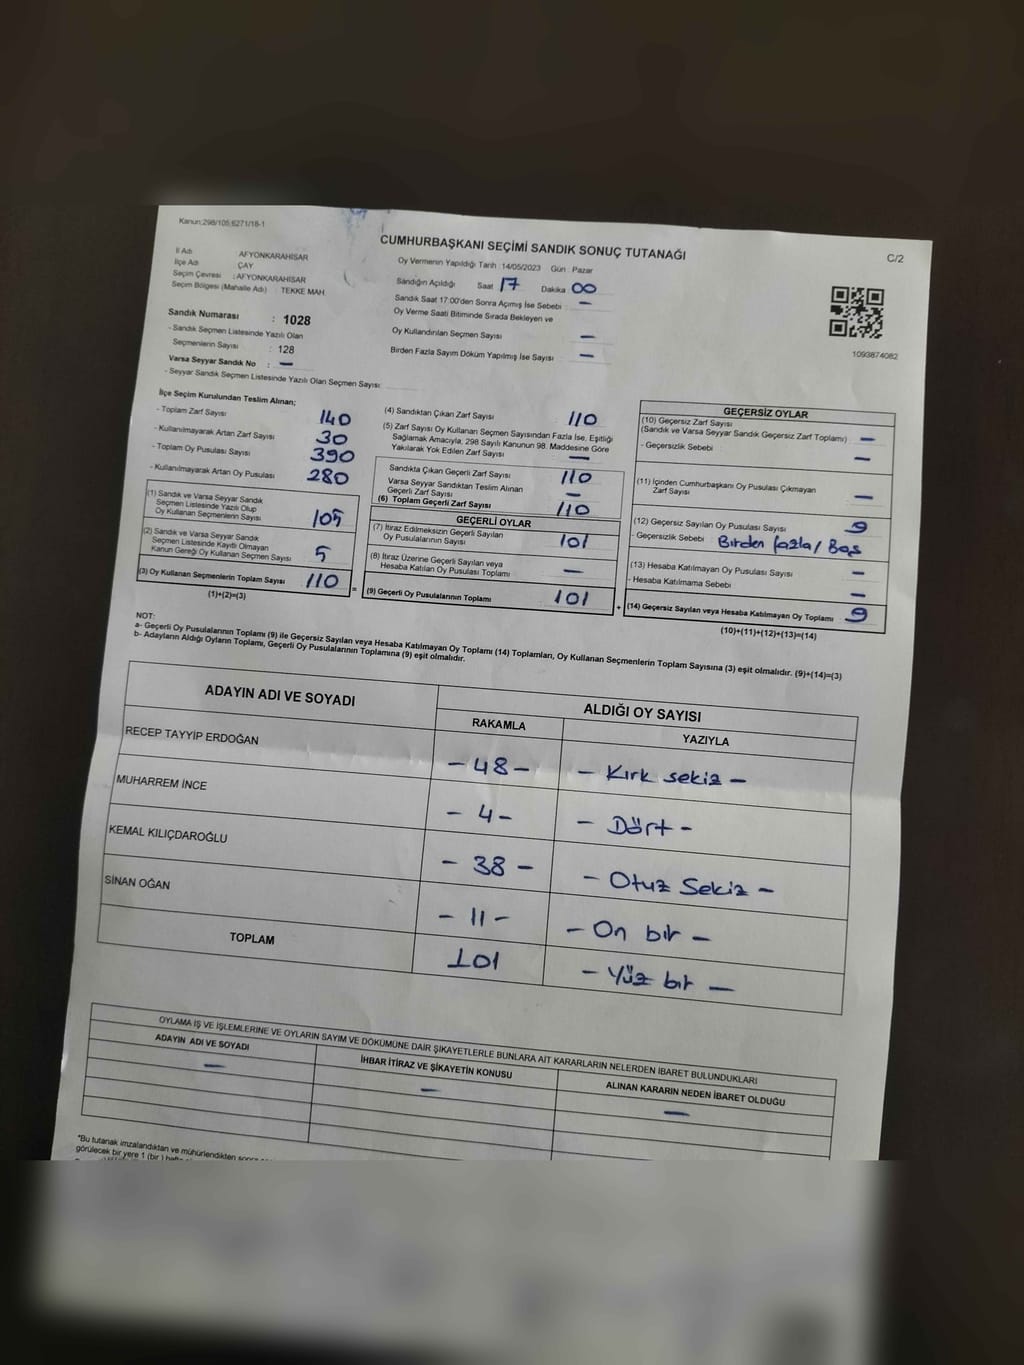 Kanun:298/105,6271/18-1
CUMHURBAŞKANI SEÇİMİ SANDIK SONUÇ TUTANAĞI
C/2
İl Adı AFYONKARAHİSAR
İlçe Adı ÇAY
Seçim Çevresi :AFYONKARAHİSAR
Seçim Bölgesi (Mahalle Adı) : TEKKE MAH.
Oy Vermenin Yapıldığı Tarih :14/05/2023 Gün : Pazar
Sandığın Açıldığı Saat 17 Dakika 00
Sandık Saat 17:00'den Sonra Açımış İse Sebebi : —
Oy Verme Saati Bitiminde Sırada Bekleyen ve
Oy Kullandırılan Seçmen Sayısı —
Birden Fazla Sayım Döküm Yapılmış İse Sayısı —
1093874082
Sandık Numarası : 1028
- Sandık Seçmen Listesinde Yazılı Olan
Seçmenlerin Sayısı : 128
Varsa Seyyar Sandık No : —
- Seyyar Sandık Seçmen Listesinde Yazılı Olan Seçmen Sayısı:
İlçe Seçim Kurulundan Teslim Alınan;
- Toplam Zarf Sayısı 140
- Kullanılmayarak Artan Zarf Sayısı 30
- Toplam Oy Pusulası Sayısı 390
- Kullanılmayarak Artan Oy Pusulası 280
(1) Sandık ve Varsa Seyyar Sandık
Seçmen Listesinde Yazılı Olup
Oy Kullanan Seçmenlerin Sayısı 105
(2) Sandık ve Varsa Seyyar Sandık
Seçmen Listesinde Kayıtlı Olmayan
Kanun Gereği Oy Kullanan Seçmen Sayısı 5
(3) Oy Kullanan Seçmenlerin Toplam Sayısı 110
(1)+(2)=(3)
=
(4) Sandıktan Çıkan Zarf Sayısı 110
(5) Zarf Sayısı Oy Kullanan Seçmen Sayısından Fazla İse, Eşitliği
Sağlamak Amacıyla, 298 Sayılı Kanunun 98. Maddesine Göre
Yakılarak Yok Edilen Zarf Sayısı —
Sandıkta Çıkan Geçerli Zarf Sayısı 110
Varsa Seyyar Sandıktan Teslim Alınan
Geçerli Zarf Sayısı —
(6) Toplam Geçerli Zarf Sayısı 110
GEÇERLİ OYLAR
(7) İtiraz Edilmeksizin Geçerli Sayılan
Oy Pusulalarının Sayısı 101
(8) İtiraz Üzerine Geçerli Sayılan veya
Hesaba Katılan Oy Pusulası Toplamı —
(9) Geçerli Oy Pusulalarının Toplamı 101
+
GEÇERSİZ OYLAR
(10) Geçersiz Zarf Sayısı
(Sandık ve Varsa Seyyar Sandık Geçersiz Zarf Toplamı) —
- Geçersizlik Sebebi —
(11) İçinden Cumhurbaşkanı Oy Pusulası Çıkmayan
Zarf Sayısı —
(12) Geçersiz Sayılan Oy Pusulası Sayısı 9
- Geçersizlik Sebebi Birden fazla/ Boş
(13) Hesaba Katılmayan Oy Pusulası Sayısı —
- Hesaba Katılmama Sebebi —
(14) Geçersiz Sayılan veya Hesaba Katılmayan Oy Toplamı 9
(10)+(11)+(12)+(13)=(14)
NOT:
a- Geçerli Oy Pusulalarının Toplamı (9) ile Geçersiz Sayılan veya Hesaba Katılmayan Oy Toplamı (14) Toplamları, Oy Kullanan Seçmenlerin Toplam Sayısına (3) eşit olmalıdır. (9)+(14)=(3)
b- Adayların Aldığı Oyların Toplamı, Geçerli Oy Pusulalarının Toplamına (9) eşit olmalıdır.
ADAYIN ADI VE SOYADI ALDIĞI OY SAYISI
RAKAMLA YAZIYLA
RECEP TAYYİP ERDOĞAN - 48 - - Kırk sekiz -
MUHARREM İNCE - 4 - - Dört -
KEMAL KILIÇDAROĞLU - 38 - - Otuz Sekiz -
SİNAN OĞAN - 11 - - On bir -
TOPLAM 101 - Yüz bir -
OYLAMA İŞ VE İŞLEMLERİNE VE OYLARIN SAYIM VE DÖKÜMÜNE DAİR ŞİKAYETLERLE BUNLARA AİT KARARLARIN NELERDEN İBARET BULUNDUKLARI
ADAYIN ADI VE SOYADI İHBAR İTİRAZ VE ŞİKAYETİN KONUSU ALINAN KARARIN NEDEN İBARET OLDUĞU
— — —
*Bu tutanak imzalandıktan ve mühürlendikten sonra
görülecek bir yere 1 (bir) hafta